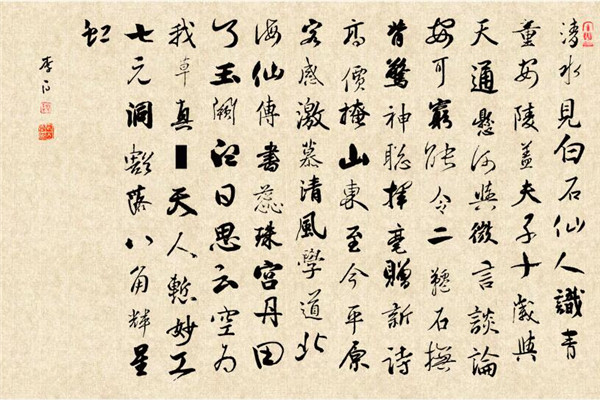 清水見白石仙人識青
童安陵盖夫子十歲與
天通懸河與微言談論
安可窮能令二韆石撫
背驚神聪揮毫贈新詩
高價掩山東至今平原
客感激慕清風學道北
海仙傳書蕊珠宫丹田
了玉闕白日思云空为
我草真天人慙妙工
七元洞豁落八角輝星
虹
李白